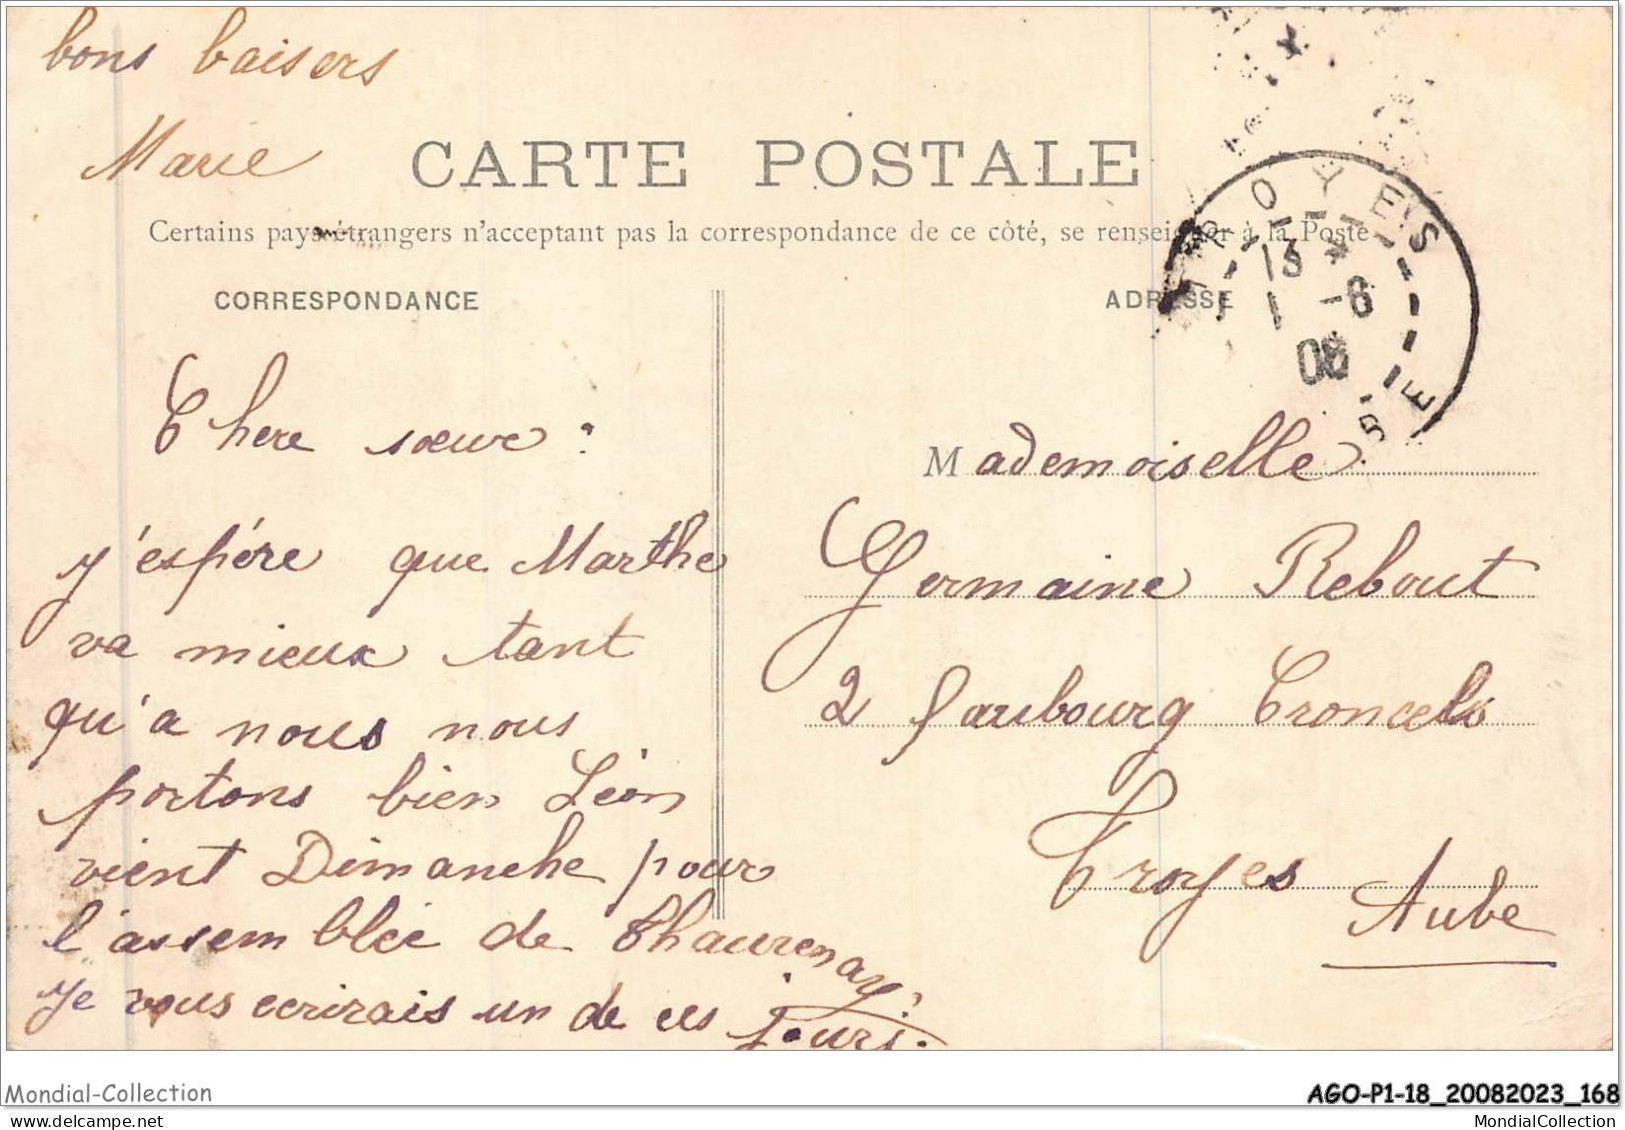 bons baisers
Marie
CARTE POSTALE
Certains pays étrangers n'acceptent pas la correspondance de ce côté, se renseigner à la Poste
CORRESPONDANCE
ADRESSE
TROYES
13 *
1 -6
06
BE
Chere sœur :
j'espére que Marthe
va mieux tant
qu'a nous nous
portons bien Léon
vient Dimanche pour
l'assemblée de Thaurenay.
Je vous ecrirais un de ces jours.
Mademoiselle
Germaine Rebout
2 faubourg Croncels
Troyes
Aube
Mondial-Collection
AGO-P1-18_20082023_168
https://www.delcampe.net
MondialCollection